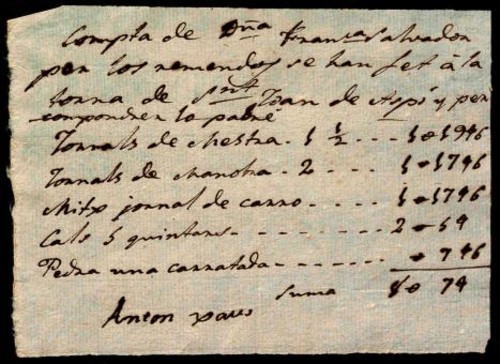 Compta de Dña Franca Salvador
per los remendos se han fet à la
torra de Snt Joan de Aspi y per
compondrer lo paller
Jornals de Mestra . 1 1/2 . . . . 1 @ 1946
Jornals de Manobra . 2 . . . . 1 @ 1746
Mitx jornal de carro . . . . 1 @ 1746
Cals 5 quintars - - - - - - 2 @ 54
Pedra una carratada - - - - - - @ 746
suma 8 @ 74
Anton